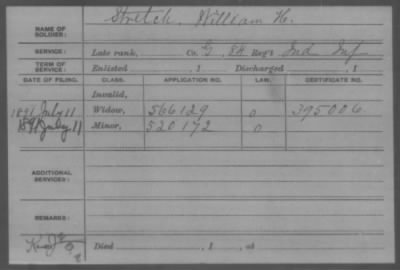 NAME OF SOLDIER: Stretch, William H.
SERVICE: Late rank, Co. G, 84 Reg't Ind Inf
TERM OF SERVICE: Enlisted , 1 Discharged , 1
DATE OF FILING. CLASS. APPLICATION NO. LAW. CERTIFICATE NO.
Invalid,
1891 July 11 Widow, 566129 0 395006
1891 July 11 Minor, 520172 0
ADDITIONAL SERVICES:
REMARKS:
Died , 1 , at